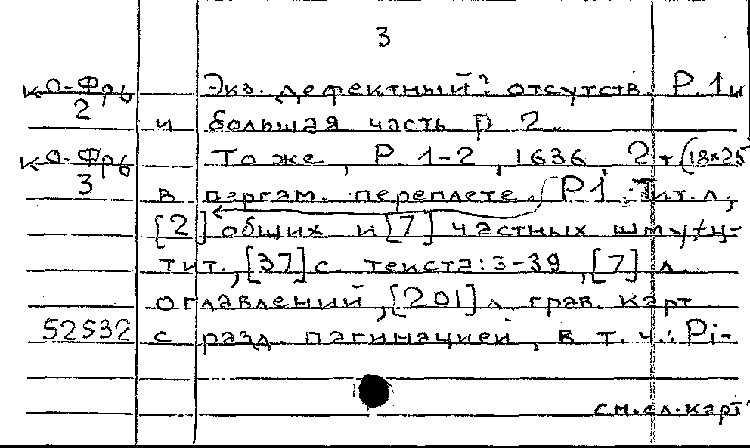 3
КО-Фрб 2 Экз. дефектный: отсутств. Р. 1 и
и большая часть Р 2
КО-Фрб 3 То же, Р. 1-2, 1636 2 т (18×25
в пергам. переплете. Р1: Тит. л.,
[2] общих и [7] частных шмуцтит
тит., [37] с. текста: 3-39, [7] л.
оглавлений, [201] л. грав. карт
52532 с разд. пагинацией, в т. ч.: Pi-
см. сл. карт